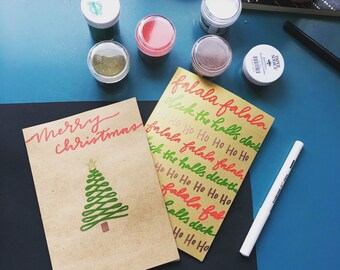 Merry
christmas
falala falala
deck the halls
Ho Ho Ho Ho
falala falala fal
deck the halls deck
Ho Ho Ho Ho Ho
falala fala
the halls deck
Ho Ho Ho Ho
falala
halls deck
Ho Ho